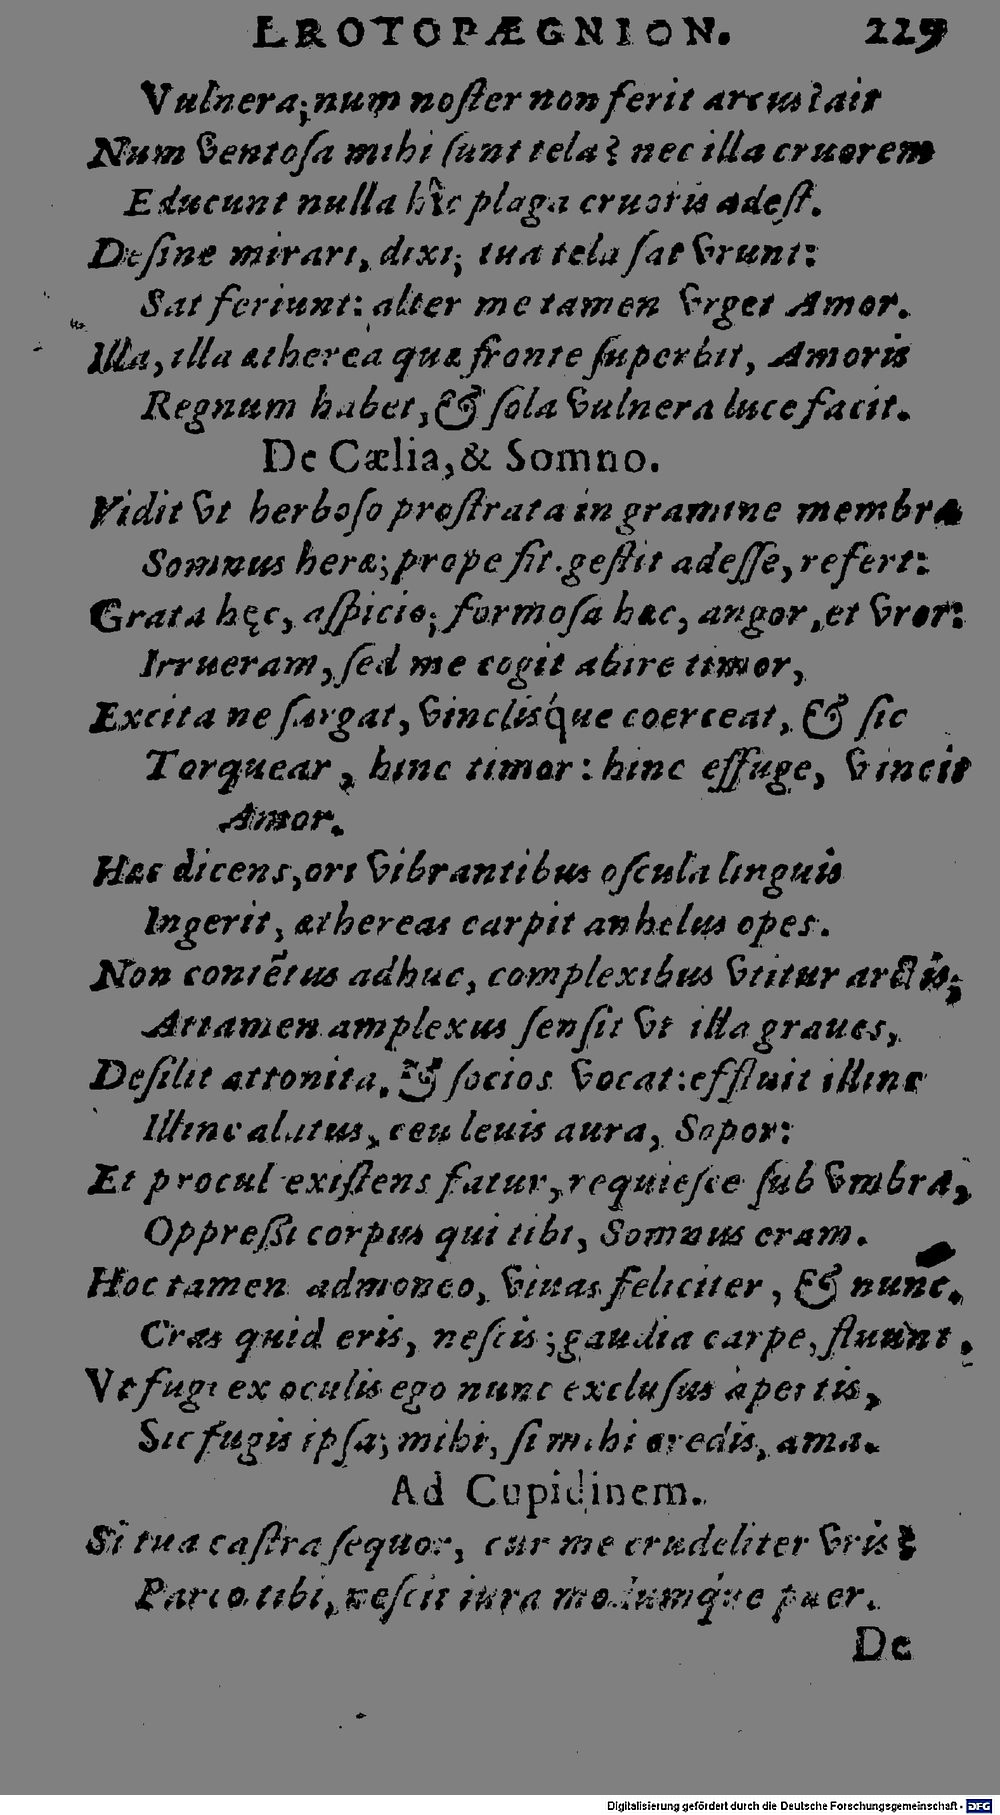 EROTOPÆGNION. 229
Vulnera; num noſter non ferit arcus? ait
Num ventoſa mihi ſunt tela? nec illa cruorem
Educunt nulla hîc plaga cruoris adeſt.
Deſine mirari, dixi; tua tela ſat vrunt:
Sat feriunt: alter me tamen vrget Amor.
Illa, illa ætherea quæ fronte ſuperbit, Amoris
Regnum habet, & ſola vulnera luce facit.
De Cælia, & Somno.
Vidit vt herboſo proſtrata in gramine membra
Somnus heræ; prope ſit. geſtit adeſſe, refert:
Grata hęc, aſpicio; formoſa hæc, angor, et vror:
Irrueram, ſed me cogit abire timor,
Excita ne ſurgat, vinclisq́ue coerceat, & ſic
Torquear, hinc timor: hinc effuge, vincit
Amor.
Hæc dicens, ori vibrantibus oſcula linguis
Ingerit, æthereas carpit anhelus opes.
Non contẽtus adhuc, complexibus vtitur arctis;
Attamen amplexus ſenſit vt illa graues,
Deſilit attonita, & ſocios vocat: effluit illinc
Illinc alatus, ceu leuis aura, Sopor:
Et procul exiſtens fatur, requieſce ſub vmbra,
Oppreſſi corpus qui tibi, Somnus eram.
Hoc tamen admoneo, viuas feliciter, & nunc.
Cras quid eris, neſcis; gaudia carpe, fluunt.
Vt fugi ex oculis ego nunc excluſus apertis,
Sic fugis ipſa; mihi, ſi mihi credis, ama.
Ad Cupidinem.
Si tua caſtra ſequor, cur me crudeliter vris?
Parco tibi, neſcit iura modumq́ue puer.
De
Digitalisierung gefördert durch die Deutsche Forschungsgemeinschaft - DFG